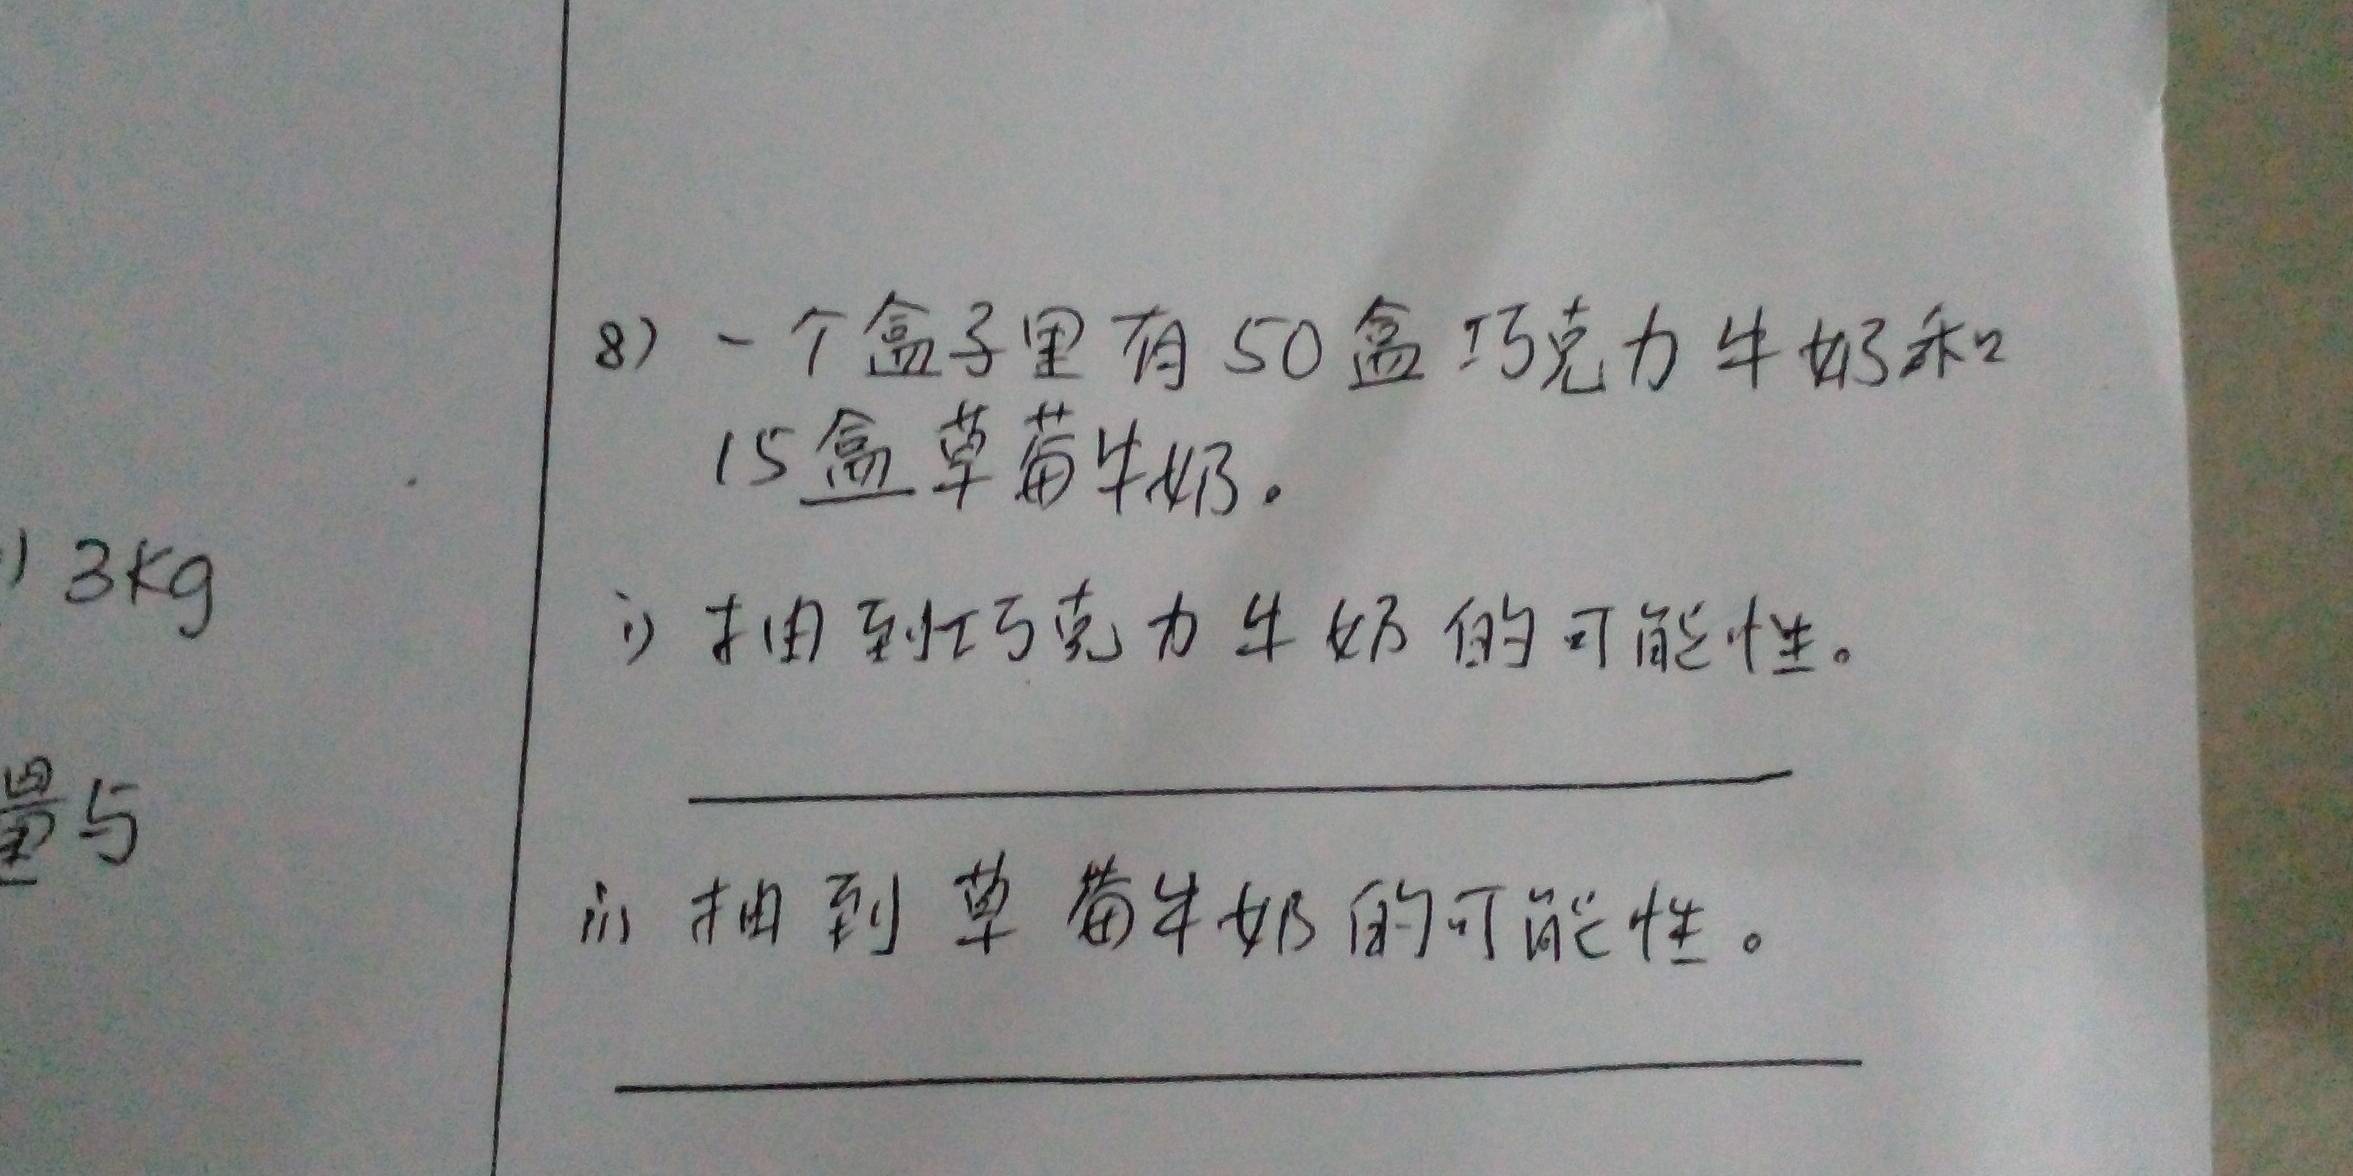 ) 3kg
量与
8) 一个盒子里有50盒巧克力牛奶和
15盒草莓牛奶.
i) 抽到巧克力牛奶的可能性。
ii) 抽到草莓牛奶的可能性。